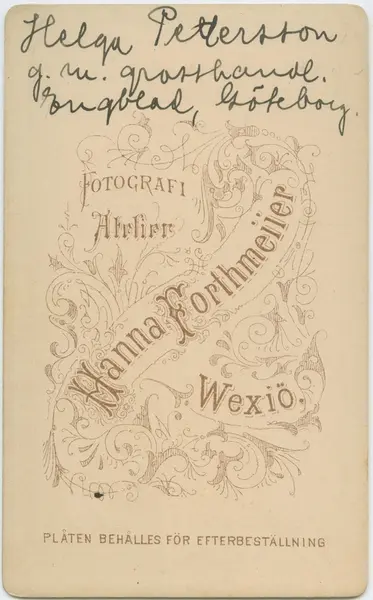 Helga Pettersson
g. m. grosshandl.
Engblad, Göteborg.
FOTOGRAFI
Atelier
Hanna Forthmeiier
Wexiö.
PLÅTEN BEHÅLLES FÖR EFTERBESTÄLLNING